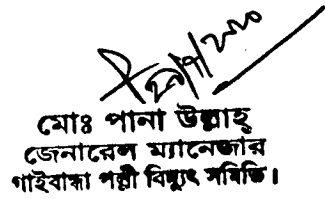 মোঃ পানা উল্লাহ্
জেনারেল ম্যানেজার
গাইবান্ধা পল্লী বিদ্যুৎ সমিতি।